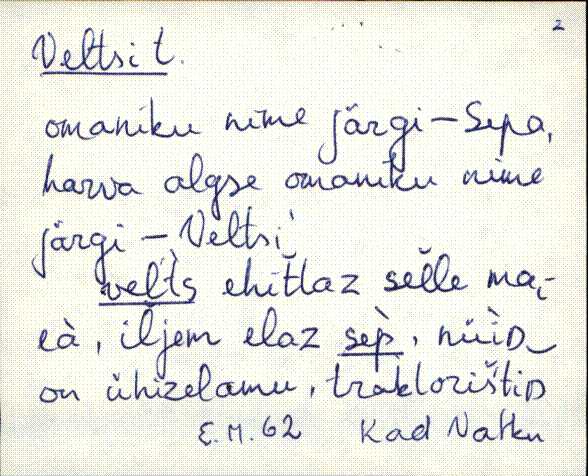 2
Veltsi t.
omaniku nime järgi – Sepa,
harva algse omaniku nime
järgi – Veltsi
vel̀t́s ehit̆t̆az sel̆l̆e ma-
eà, il̆jem elaz sep̀, nüìD
on ühizelamu, traktorišt́iD
E.M. 62 Kad Natku